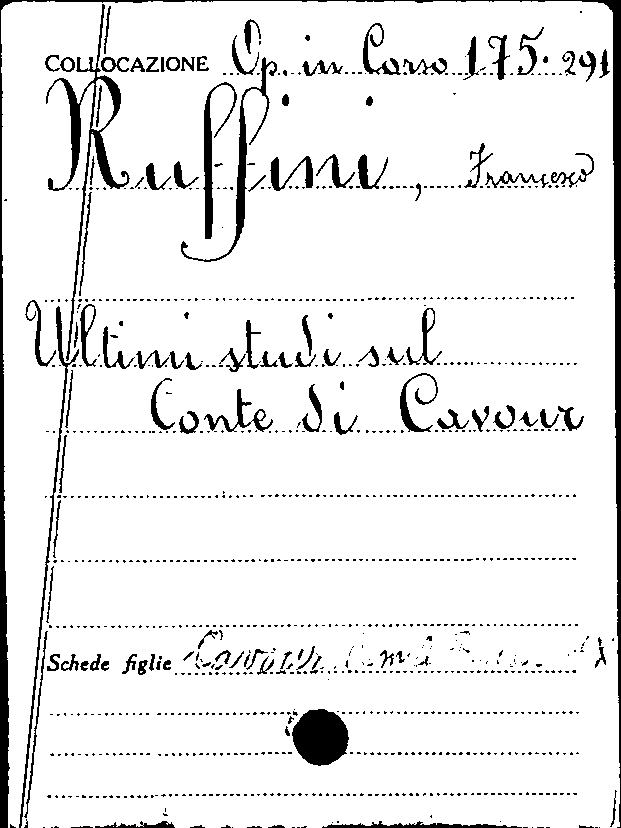 COLLOCAZIONE Op. in Corso 175. 291
Ruffini, Francesco
Ultimi studi sul
Conte di Cavour
Schede figlie Cavour